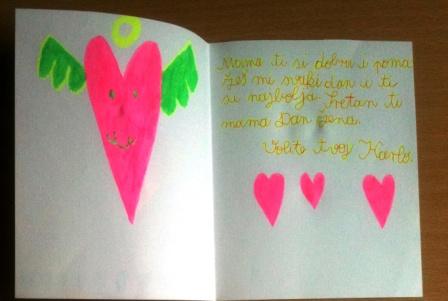 Mama ti si dobra i poma
žeš mi svaki dan i ti
si najbolja. Sretan ti
mama Dan žena.
Volite tvoj Karlo.